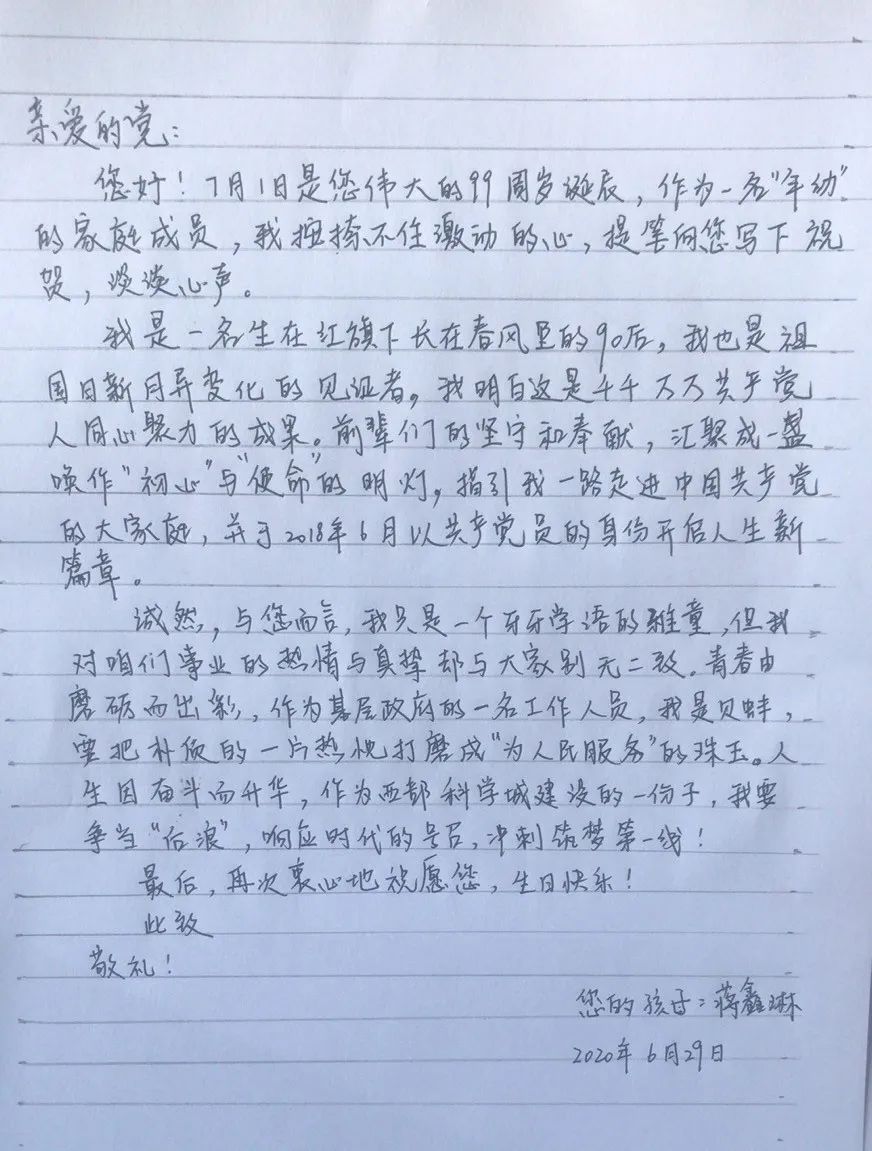 亲爱的党：
您好！7月1日是您伟大的99周岁诞辰，作为一名“年幼”
的家庭成员，我按捺不住激动的心，提笔向您写下祝
贺，谈谈心声。
我是一名生在红旗下长在春风里的90后，我也是祖
国日新月异变化的见证者。我明白这是千千万万共产党
人同心聚力的成果。前辈们的坚守和奉献，汇聚成一盏
唤作“初心”与“使命”的明灯，指引我一路走进中国共产党
的大家庭，并于2018年6月以共产党员的身份开启人生新
篇章。
诚然，与您而言，我只是一个牙牙学语的稚童，但我
对咱们事业的热情与真挚却与大家别无二致。青春由
磨砺而出彩，作为基层政府的一名工作人员，我是贝蚌，
要把朴质的一片热忱打磨成“为人民服务”的珠玉。人
生因奋斗而升华，作为西部科学城建设的一份子，我要
争当“后浪”，响应时代的号召，冲刺筑梦第一线！
最后，再次衷心地祝愿您，生日快乐！
此致
敬礼！
您的孩子：蒋鑫琳
2020年6月29日